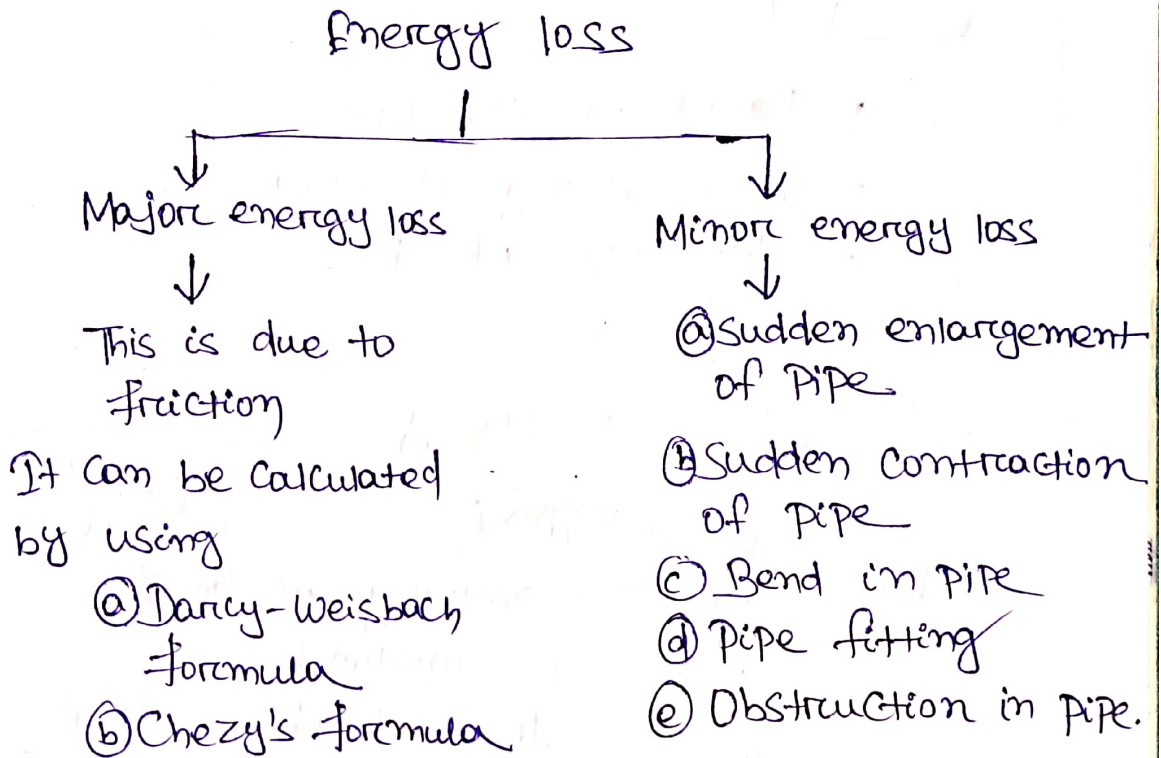 Energy loss
Major energy loss
This is due to
friction
It can be calculated
by using
ⓐ Darcy-Weisbach
formula
ⓑ Chezy's formula
Minor energy loss
ⓐ Sudden enlargement
of Pipe
ⓑ Sudden Contraction
of pipe
ⓒ Bend in pipe
ⓓ Pipe fitting
ⓔ Obstruction in pipe.